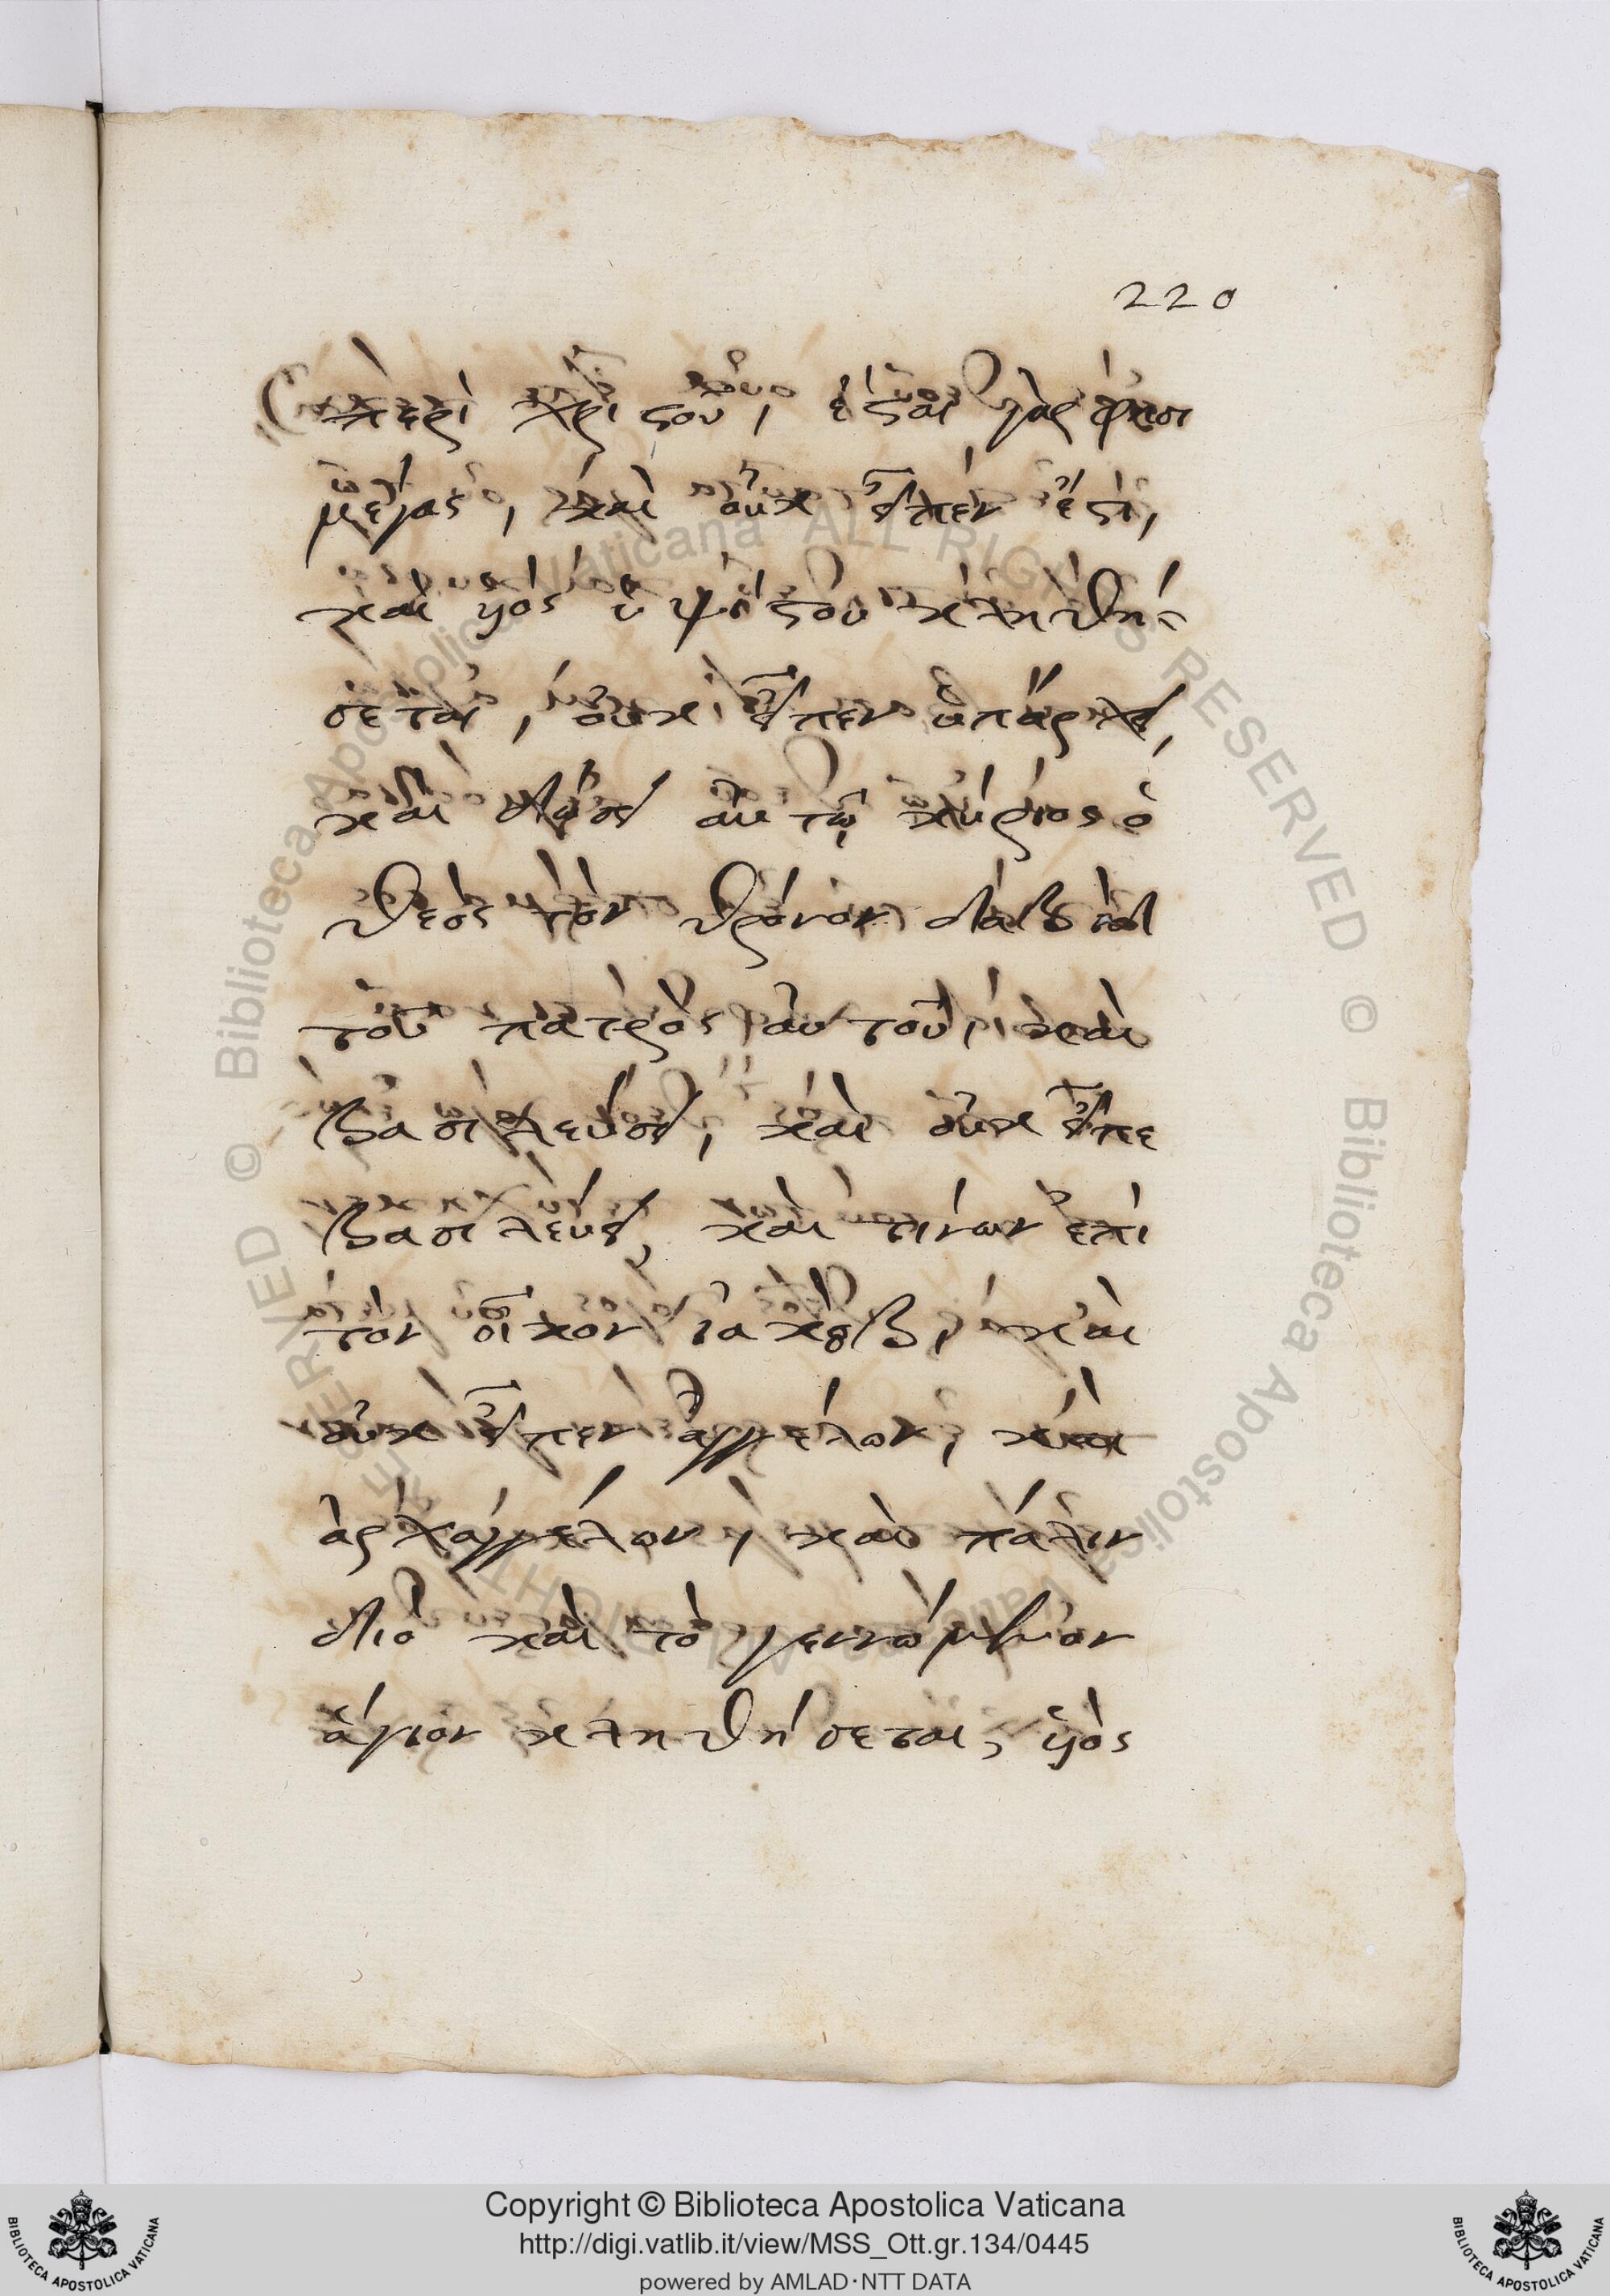 220
περὶ χριστοῦ, ἔσται γὰρ φησι
μέγας, καὶ οὐκ εἶπεν ἔστι,
καὶ υἱὸς ὑψίστου κληθή-
σεται, οὐκ εἶπεν ὑπάρχει,
καὶ δώσει αὐτῷ κύριος ὁ
θεὸς τὸν θρόνον δαβὶδ
τοῦ πατρὸς αὐτοῦ, καὶ
βασιλεύσει, καὶ οὐκ εἶπε
βασιλεύει, καὶ τίνων ἐπὶ
τὸν οἶκον ἰακὼβ, καὶ
οὐκ εἶπεν ἀγγέλων, καὶ
ἀρχαγγέλων, καὶ πάλιν
διὸ καὶ τὸ γεννώμενον
ἅγιον κληθήσεται, υἱὸς
© Biblioteca Apostolica Vaticana ALL RIGHTS RESERVED © Biblioteca Apostolica Vaticana ALL RIGHTS RESERVED
Copyright © Biblioteca Apostolica Vaticana
http://digi.vatlib.it/view/MSS_Ott.gr.134/0445
powered by AMLAD·NTT DATA
BIBLIOTECA APOSTOLICA VATICANA
BIBLIOTECA APOSTOLICA VATICANA